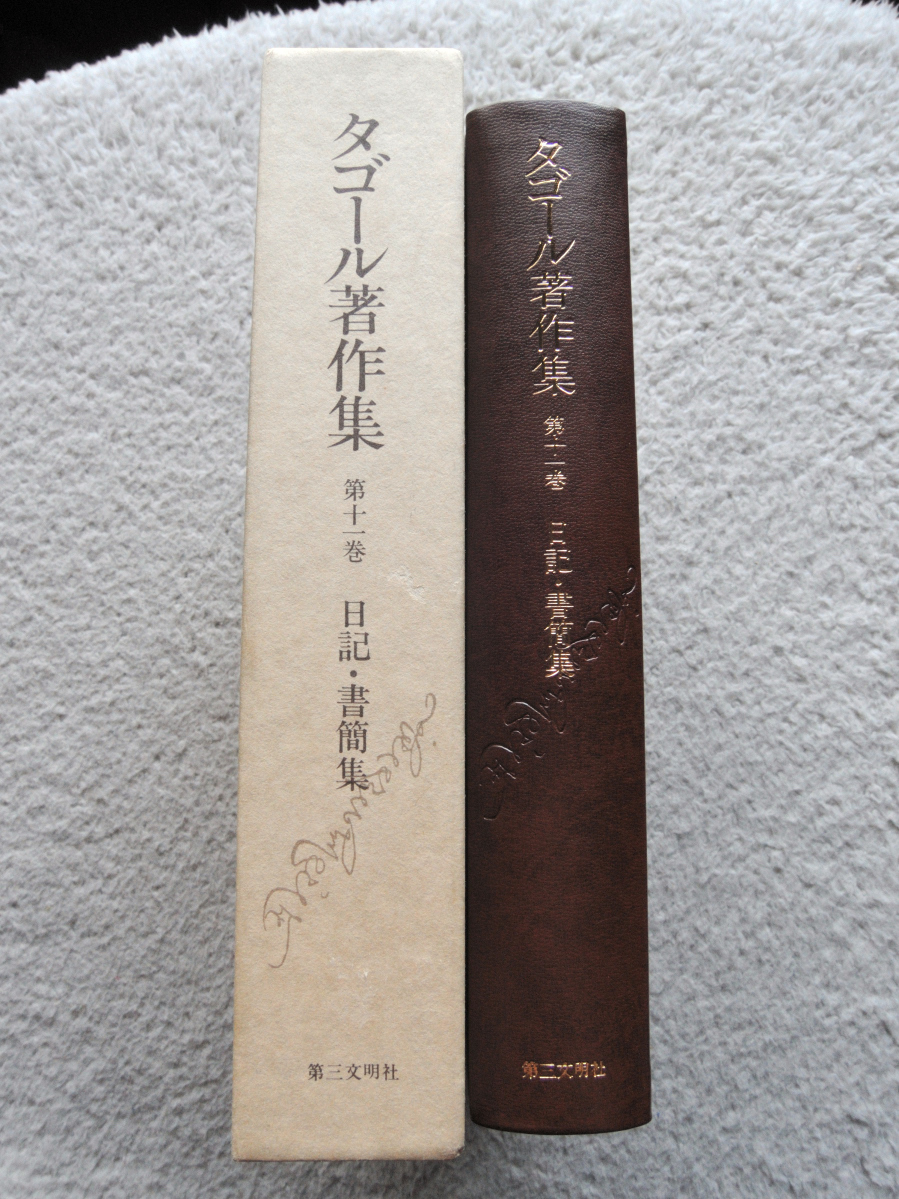 タゴール著作集 第十一巻 日記・書簡集
第三文明社
タゴール著作集 第十一巻 日記・書簡集
第三文明社